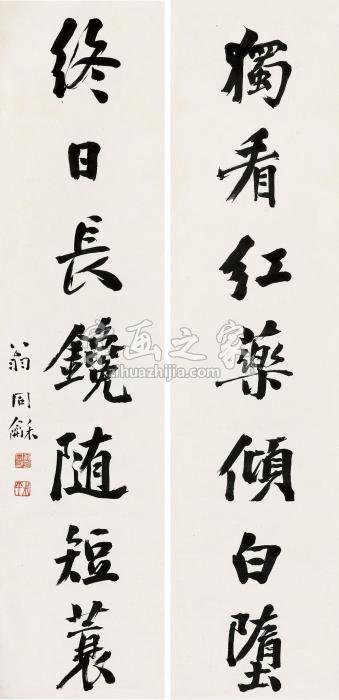 獨看紅藥傾白墮
終日長鑱隨短蓑
翁同龢
書画之家
shuhuazhijia.com